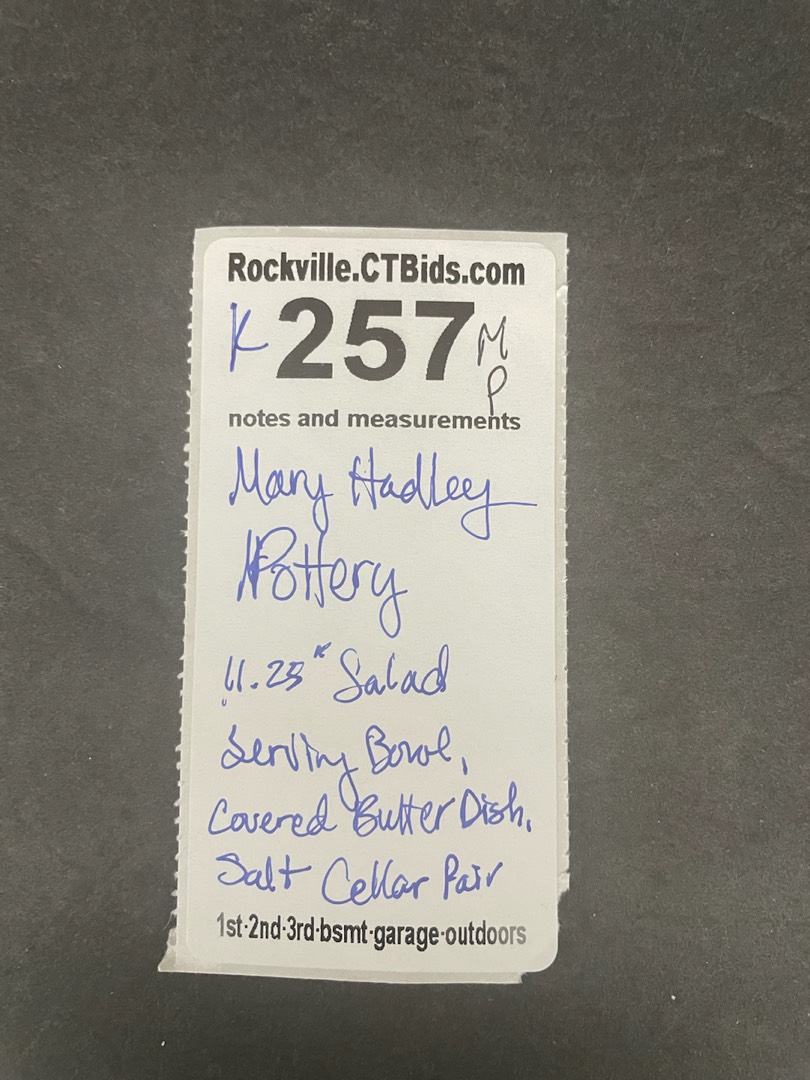 Rockville.CTBids.com
K 257 M
P
notes and measurements
Mary Hadley
Pottery
11.25" Salad
Serving Bowl,
Covered Butter Dish,
Salt Cellar Pair
1st·2nd·3rd·bsmt·garage·outdoors